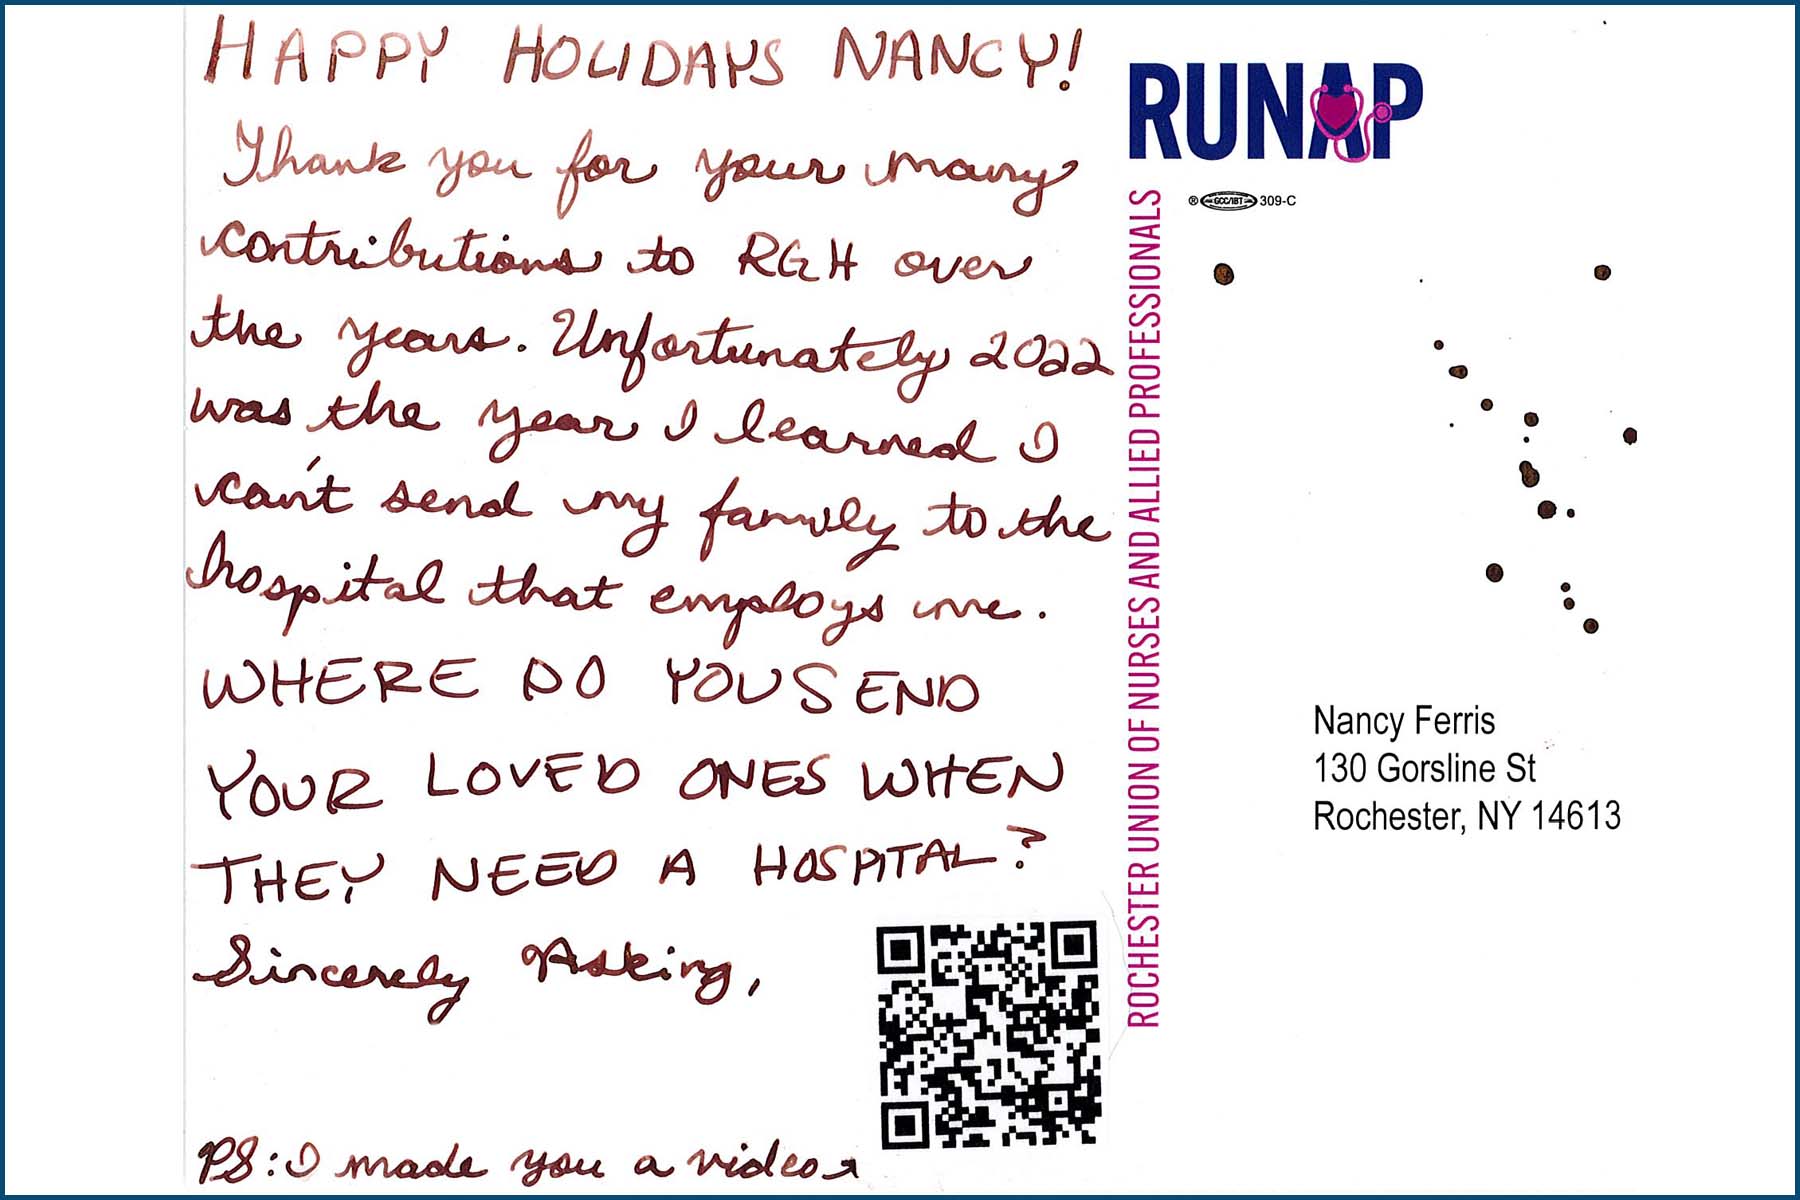 HAPPY HOLIDAYS NANCY!
Thank you for your many
contributions to RGH over
the years. Unfortunately 2022
was the year I learned I
can't send my family to the
hospital that employs me.
WHERE DO YOU SEND
YOUR LOVED ONES WHEN
THEY NEED A HOSPITAL?
Sincerely Asking,
PS: I made you a video
RUNAP
® GCC/IBT 309-C
ROCHESTER UNION OF NURSES AND ALLIED PROFESSIONALS
Nancy Ferris
130 Gorsline St
Rochester, NY 14613